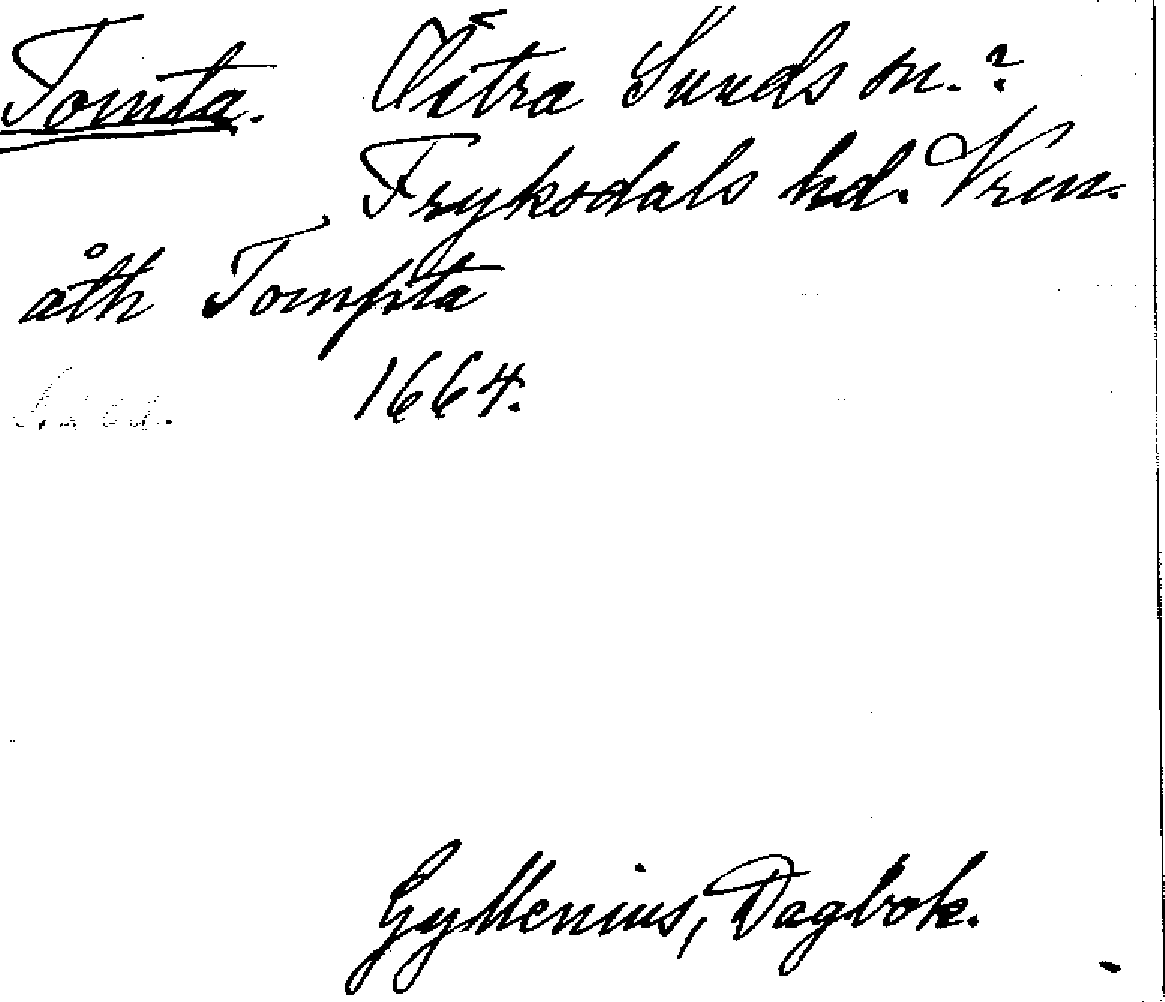 Tomta. Östra Sunds sn.?
Fryksdals hd. Vrm.
åth Tompta
1664.
Gyllenius, Dagbok.